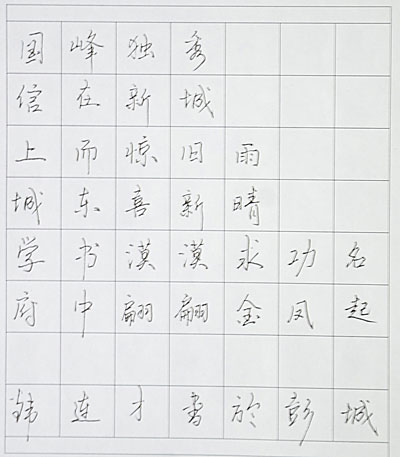 国峰独秀
信在新城
上而惊旧雨
城东喜新晴
学书漠漠求功名
府中翩翩金凤起
韩连才书于彭城